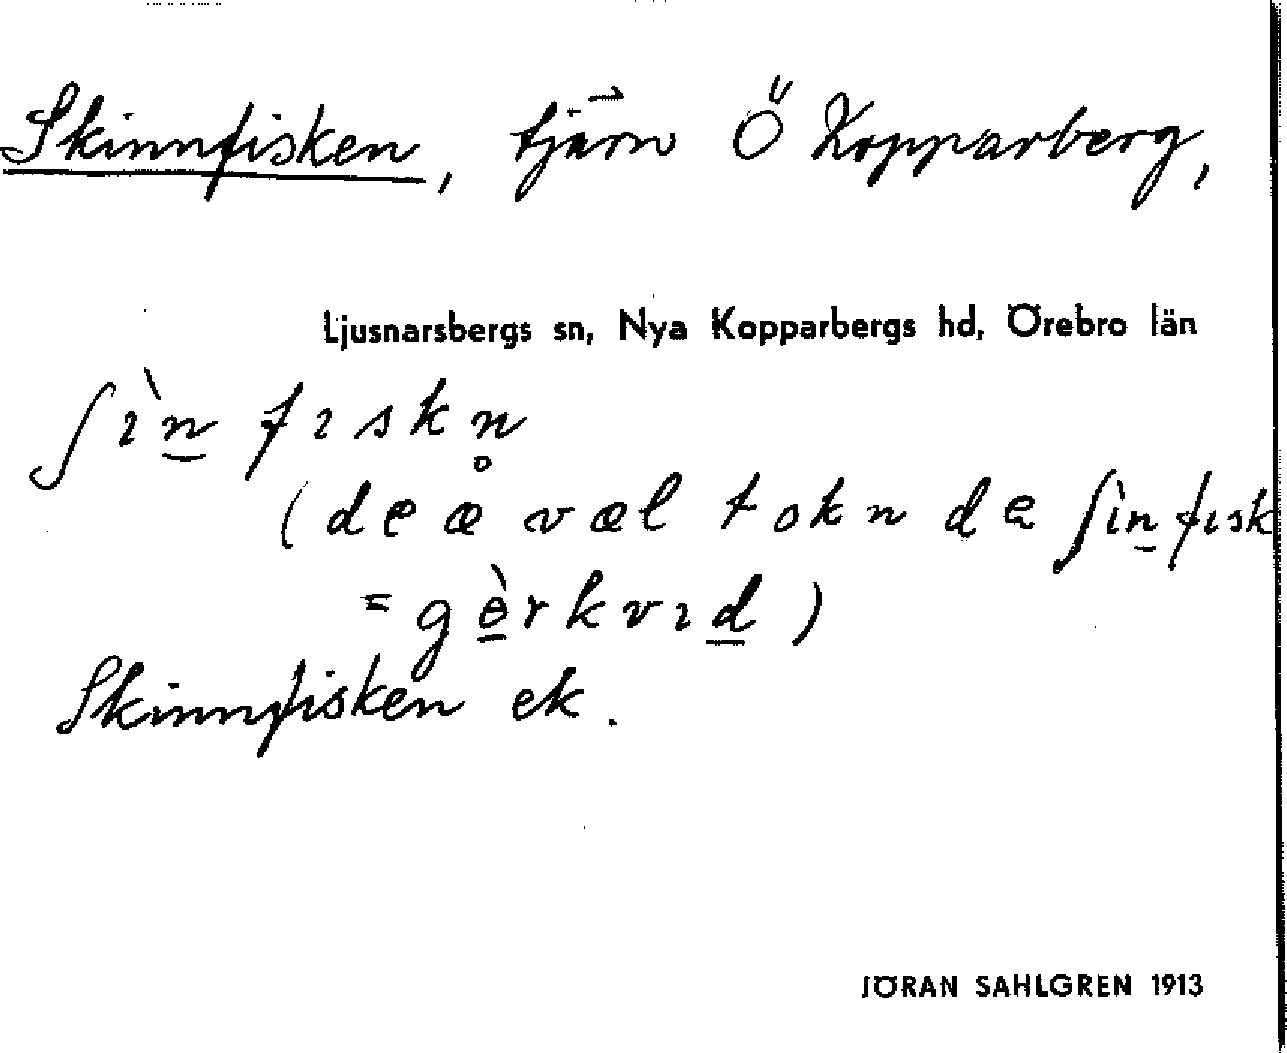 Skinnfisken, tjärn Ö Kopparberg,
Ljusnarsbergs sn, Nya Kopparbergs hd, Örebro län
ʃìn̲fɪskn̥
(de æ væl tokn de ʃìn̲fɪsk
= gè̲rkvɪd̲)
Skinnfisken ek.
JÖRAN SAHLGREN 1913